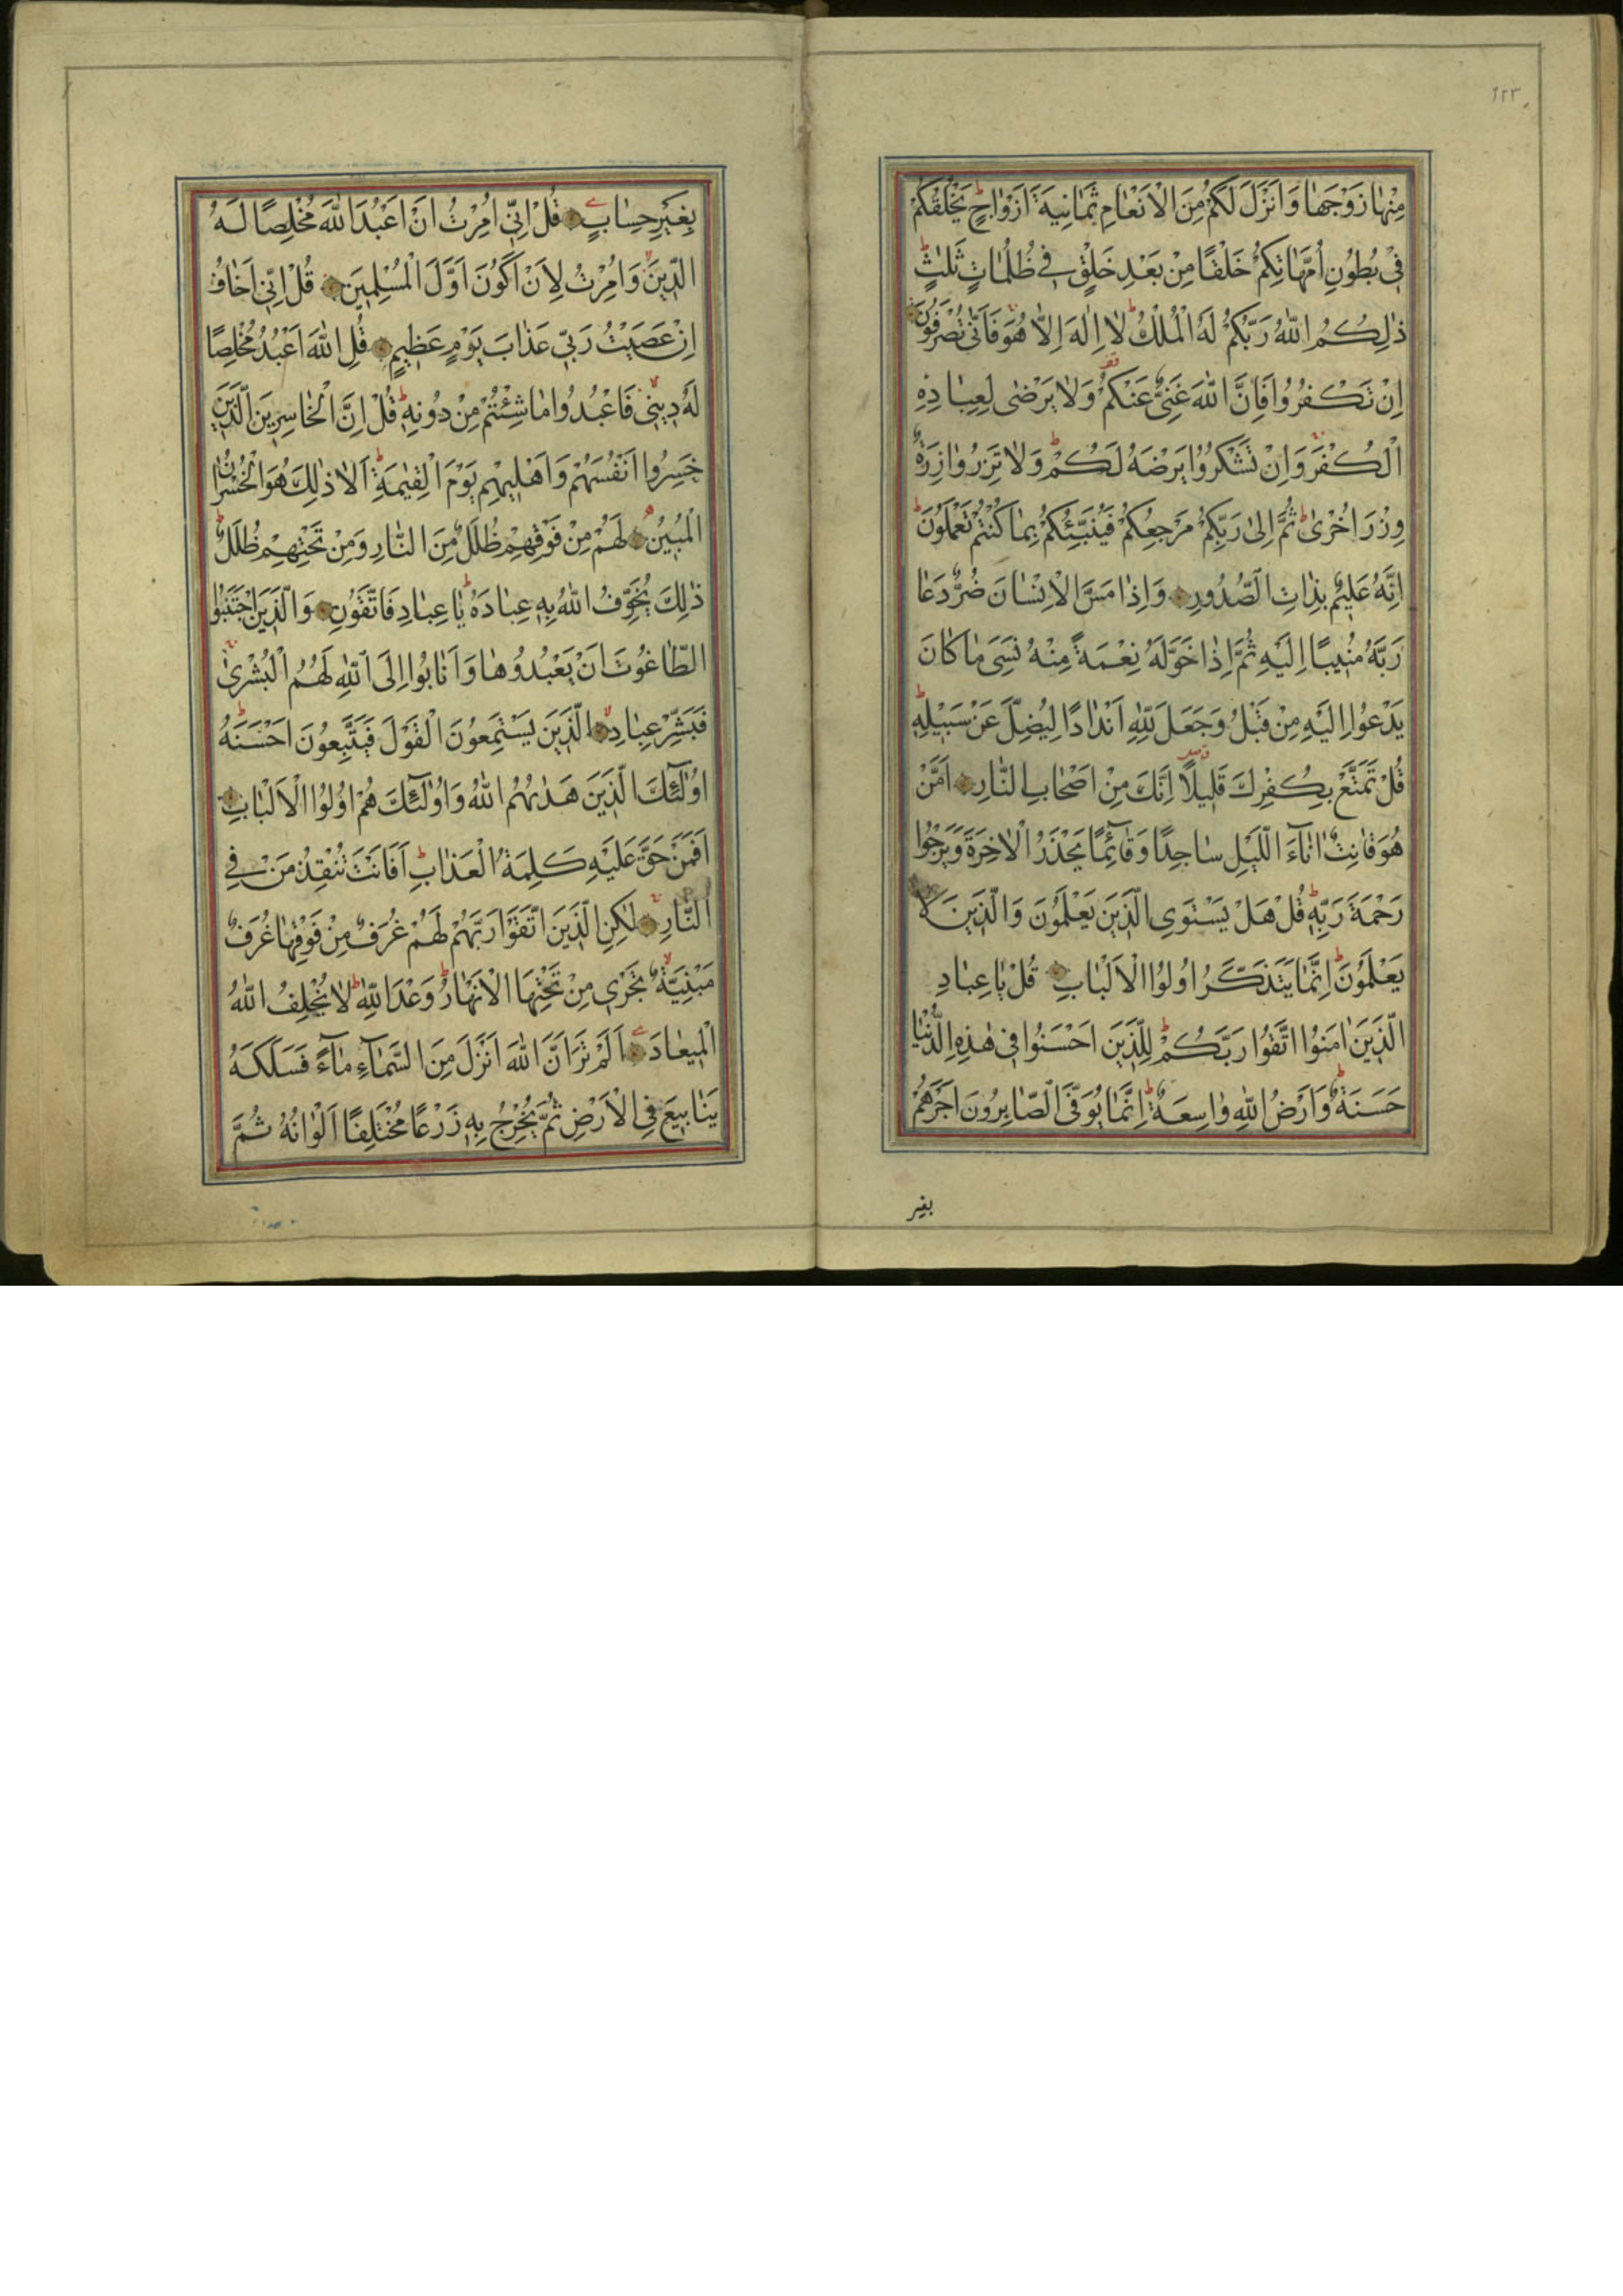 ۶۲۳
مِنْهَا زَوْجَهَا وَاَنْزَلَ لَكُمْ مِنَ الْاَنْعَامِ ثَمَانِيَةَ اَزْوَاجٍ يَخْلُقُكُمْ
فِي بُطُونِ اُمَّهَاتِكُمْ خَلْقًا مِنْ بَعْدِ خَلْقٍ فِي ظُلُمَاتٍ ثَلٰثٍ
ذٰلِكُمُ اللّٰهُ رَبُّكُمْ لَهُ الْمُلْكُ لَا اِلٰهَ اِلَّا هُوَ فَاَنّٰى تُصْرَفُونَ
اِنْ تَكْفُرُوا فَاِنَّ اللّٰهَ غَنِيٌّ عَنْكُمْ وَلَا يَرْضٰى لِعِبَادِهِ
الْكُفْرَ وَاِنْ تَشْكُرُوا يَرْضَهُ لَكُمْ وَلَا تَزِرُ وَازِرَةٌ
وِزْرَ اُخْرٰى ثُمَّ اِلٰى رَبِّكُمْ مَرْجِعُكُمْ فَيُنَبِّئُكُمْ بِمَا كُنْتُمْ تَعْمَلُونَ
اِنَّهُ عَلِيمٌ بِذَاتِ الصُّدُورِ وَاِذَا مَسَّ الْاِنْسَانَ ضُرٌّ دَعَا
رَبَّهُ مُنِيبًا اِلَيْهِ ثُمَّ اِذَا خَوَّلَهُ نِعْمَةً مِنْهُ نَسِيَ مَا كَانَ
يَدْعُوا اِلَيْهِ مِنْ قَبْلُ وَجَعَلَ لِلّٰهِ اَنْدَادًا لِيُضِلَّ عَنْ سَبِيلِهِ
قُلْ تَمَتَّعْ بِكُفْرِكَ قَلِيلًا اِنَّكَ مِنْ اَصْحَابِ النَّارِ اَمَّنْ
هُوَ قَانِتٌ اٰنَاءَ اللَّيْلِ سَاجِدًا وَقَائِمًا يَحْذَرُ الْاٰخِرَةَ وَيَرْجُوا
رَحْمَةَ رَبِّهِ قُلْ هَلْ يَسْتَوِي الَّذِينَ يَعْلَمُونَ وَالَّذِينَ لَا
يَعْلَمُونَ اِنَّمَا يَتَذَكَّرُ اُولُوا الْاَلْبَابِ قُلْ يَا عِبَادِ
الَّذِينَ اٰمَنُوا اتَّقُوا رَبَّكُمْ لِلَّذِينَ اَحْسَنُوا فِي هٰذِهِ الدُّنْيَا
حَسَنَةٌ وَاَرْضُ اللّٰهِ وَاسِعَةٌ اِنَّمَا يُوَفَّى الصَّابِرُونَ اَجْرَهُمْ
بغير
بِغَيْرِ حِسَابٍ قُلْ اِنِّي اُمِرْتُ اَنْ اَعْبُدَ اللّٰهَ مُخْلِصًا لَهُ
الدِّينَ وَاُمِرْتُ لِاَنْ اَكُونَ اَوَّلَ الْمُسْلِمِينَ قُلْ اِنِّي اَخَافُ
اِنْ عَصَيْتُ رَبِّي عَذَابَ يَوْمٍ عَظِيمٍ قُلِ اللّٰهَ اَعْبُدُ مُخْلِصًا
لَهُ دِينِي فَاعْبُدُوا مَا شِئْتُمْ مِنْ دُونِهِ قُلْ اِنَّ الْخَاسِرِينَ الَّذِينَ
خَسِرُوا اَنْفُسَهُمْ وَاَهْلِيهِمْ يَوْمَ الْقِيٰمَةِ اَلَا ذٰلِكَ هُوَ الْخُسْرَانُ
الْمُبِينُ لَهُمْ مِنْ فَوْقِهِمْ ظُلَلٌ مِنَ النَّارِ وَمِنْ تَحْتِهِمْ ظُلَلٌ
ذٰلِكَ يُخَوِّفُ اللّٰهُ بِهِ عِبَادَهُ يَا عِبَادِ فَاتَّقُونِ وَالَّذِينَ اجْتَنَبُوا
الطَّاغُوتَ اَنْ يَعْبُدُوهَا وَاَنَابُوا اِلَى اللّٰهِ لَهُمُ الْبُشْرٰى
فَبَشِّرْ عِبَادِ الَّذِينَ يَسْتَمِعُونَ الْقَوْلَ فَيَتَّبِعُونَ اَحْسَنَهُ
اُولٰئِكَ الَّذِينَ هَدٰيهُمُ اللّٰهُ وَاُولٰئِكَ هُمْ اُولُوا الْاَلْبَابِ
اَفَمَنْ حَقَّ عَلَيْهِ كَلِمَةُ الْعَذَابِ اَفَاَنْتَ تُنْقِذُ مَنْ فِي
النَّارِ لٰكِنِ الَّذِينَ اتَّقَوْا رَبَّهُمْ لَهُمْ غُرَفٌ مِنْ فَوْقِهَا غُرَفٌ
مَبْنِيَّةٌ تَجْرِي مِنْ تَحْتِهَا الْاَنْهَارُ وَعْدَ اللّٰهِ لَا يُخْلِفُ اللّٰهُ
الْمِيعَادَ اَلَمْ تَرَ اَنَّ اللّٰهَ اَنْزَلَ مِنَ السَّمَاءِ مَاءً فَسَلَكَهُ
يَنَابِيعَ فِي الْاَرْضِ ثُمَّ يُخْرِجُ بِهِ زَرْعًا مُخْتَلِفًا اَلْوَانُهُ ثُمَّ